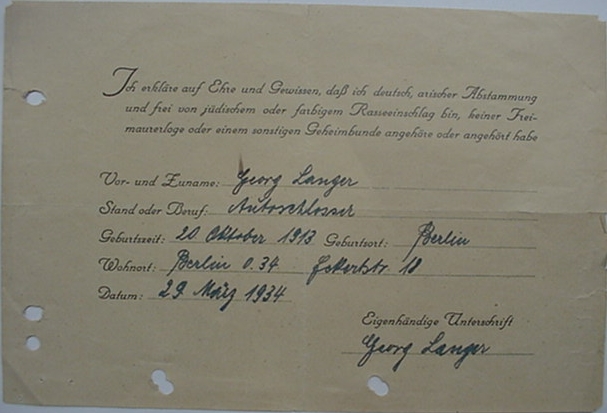 Ich erkläre auf Ehre und Gewissen, daß ich deutsch, arischer Abstammung
und frei von jüdischem oder farbigem Rasseeinschlag bin, keiner Frei-
maurerloge oder einem sonstigen Geheimbunde angehöre oder angehört habe
Vor- und Zuname: Georg Langer
Stand oder Beruf: Autoschlosser
Geburtszeit: 20 Oktober 1913 Geburtsort: Berlin
Wohnort: Berlin O.34 Eckertstr. 18
Datum: 29. März 1934
Eigenhändige Unterschrift
Georg Langer